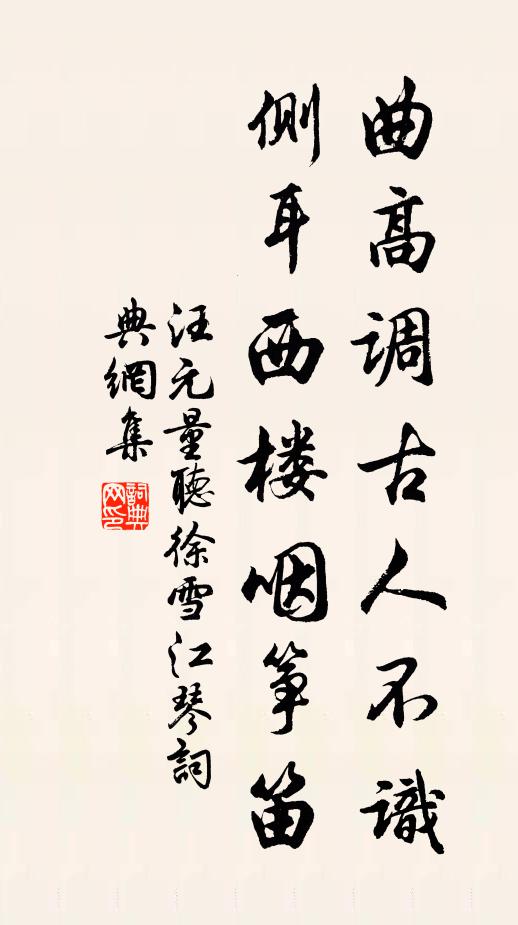 曲高调古人不識
侧耳西楼咽筝笛
汪元量聽徐雪江琴詞
典網集
詞典
网印